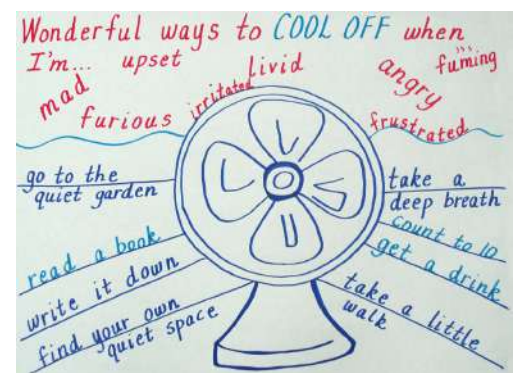 Wonderful ways to COOL OFF when
I'm... upset livid angry fuming
mad furious irritated frustrated
go to the
quiet garden
read a book
write it down
find your own
quiet space
take a
deep breath
count to 10
get a drink
take a little
walk